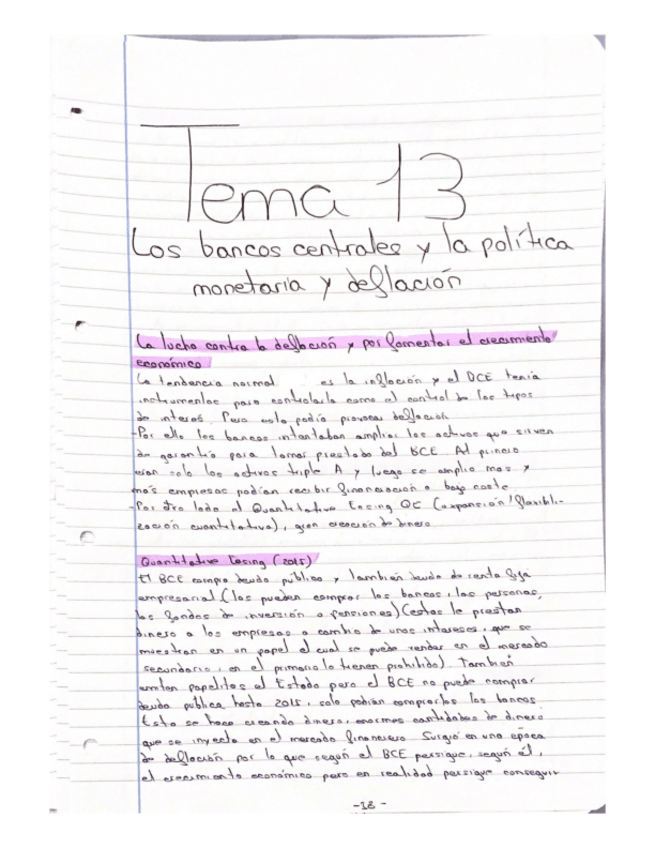 Tema 13
Los bancos centrales y la política
monetaria y deflación
La lucha contra la deflación y por fomentar el crecimiento
económico
La tendencia normal es la inflación y el DCE tenía
instrumentos para controlarla como el control de los tipos
de interés. Pero esto podía provocar deflación
-Por ello los bancos intentaban ampliar los activos que sirven
de garantía para tomar prestado del BCE Al principio
eran solo los activos triple A y luego se amplio mas y
más empresas podían recibir financiación a bajo coste
-Por otro lado el Quantitative Easing QE (expansión/flexibili-
zación cuantitativa), gran creación de dinero
Quantitative Easing (2015)
El BCE compra deuda pública y también deuda de renta fija
empresarial (las pueden comprar los bancos, las personas,
los fondos de inversión o pensiones) (estos le prestan
dinero a las empresas a cambio de unos intereses, que se
muestran en un papel el cual se puede vender en el mercado
secundario, en el primario lo tienen prohibido). También
emiten papelitos el Estado pero el BCE no puede comprar
deuda pública hasta 2015, solo podían comprarlos los bancos
Esto se hace creando dinero, enormes cantidades de dinero
que se inyecta en el mercado financiero Surgió en una época
de deflación por lo que según el BCE persigue, según él,
el crecimiento económico pero en realidad persigue conseguir
-18-